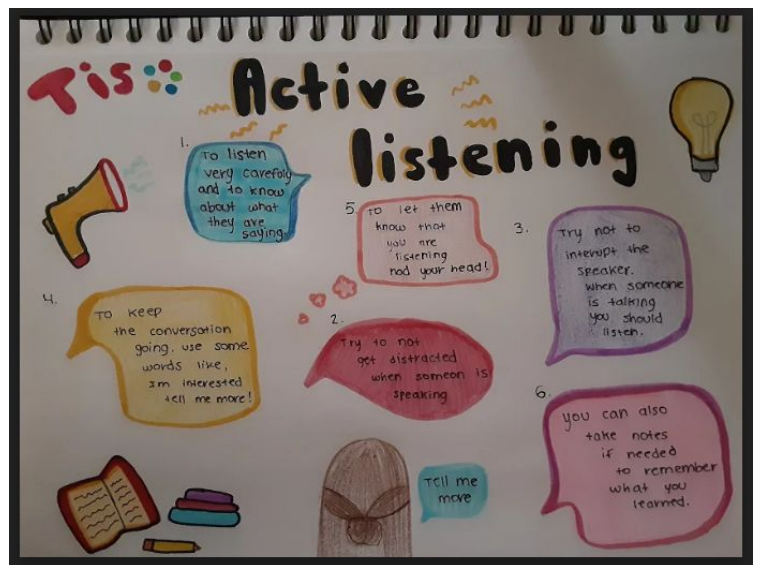 Tis
Active
listening
1.
To listen
very carefoly
and to know
about what
they are
saying.
2.
Try to not
get distracted
when someon is
speaking
3.
Try not to
interupt the
speaker.
when someone
is talking
you should
listen.
4.
To keep
the conversation
going, use some
words like,
Im interested
tell me more!
5.
To let them
know that
you are
listening
nod your head!
6.
you can also
take notes
if needed
to remember
what you
learned.
Tell me
more